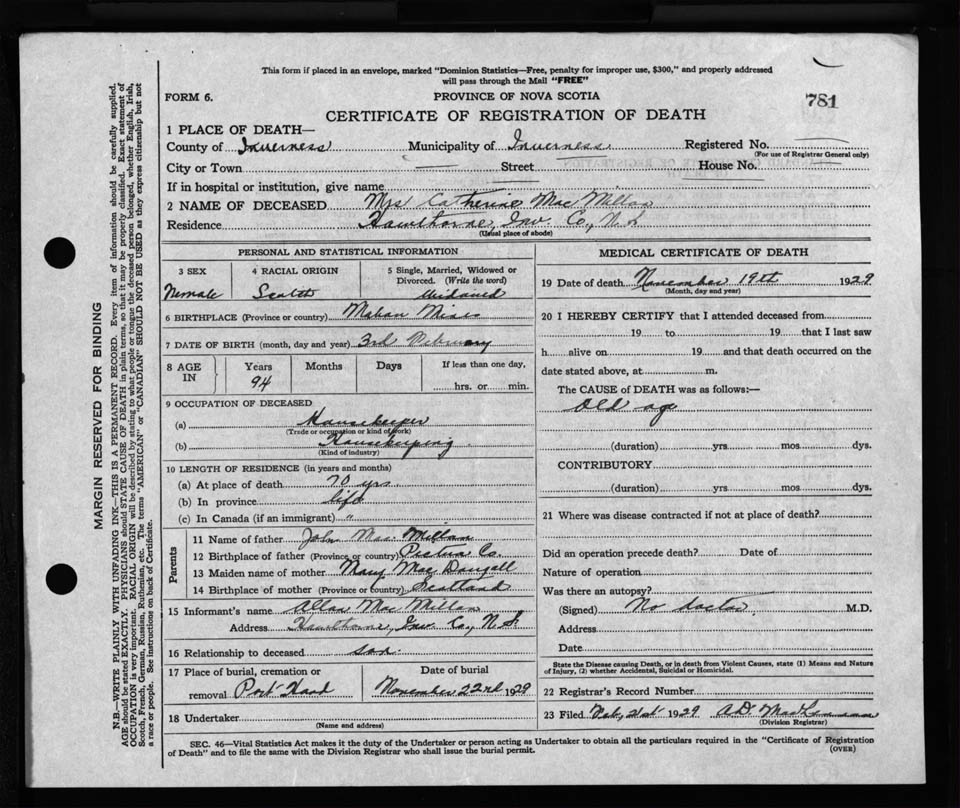 This form if placed in an envelope, marked "Dominion Statistics—Free, penalty for improper use, $300," and properly addressed
will pass through the Mail "FREE"
FORM 6.
PROVINCE OF NOVA SCOTIA
781
CERTIFICATE OF REGISTRATION OF DEATH
1 PLACE OF DEATH—
County of Inverness Municipality of Inverness Registered No.
(For use of Registrar General only)
City or Town Street House No.
If in hospital or institution, give name
2 NAME OF DECEASED Mrs Catherine Mac Millan
Residence Hawthorne, Inv. Co., N.S
(Usual place of abode)
PERSONAL AND STATISTICAL INFORMATION
3 SEX 4 RACIAL ORIGIN 5 Single, Married, Widowed or Divorced. (Write the word)
Female Scotch Widowed
6 BIRTHPLACE (Province or country) Mabou Mines
7 DATE OF BIRTH (month, day and year) 3rd February
8 AGE IN Years Months Days If less than one day,
94 hrs. or min.
9 OCCUPATION OF DECEASED
(a) Housekeeper
(Trade or occupation or kind of work)
(b) Housekeeping
(Kind of industry)
10 LENGTH OF RESIDENCE (in years and months)
(a) At place of death 70 yrs
(b) In province life
(c) In Canada (if an immigrant) "
Parents
11 Name of father John Mac Millan
12 Birthplace of father (Province or country) Pictou Co.
13 Maiden name of mother Mary Mac Dougall
14 Birthplace of mother (Province or country) Scotland
15 Informant's name Allan Mac Millan
Address Hawthorne, Inv Co, N.S
16 Relationship to deceased son
17 Place of burial, cremation or Date of burial
removal Port Hood November 22nd 1929
18 Undertaker
(Name and address)
MEDICAL CERTIFICATE OF DEATH
19 Date of death November 19th 1929
(Month, day and year)
20 I HEREBY CERTIFY that I attended deceased from
19 to 19 that I last saw
h alive on 19 and that death occurred on the
date stated above, at m.
The CAUSE of DEATH was as follows:—
Old age
(duration) yrs mos dys.
CONTRIBUTORY
(duration) yrs mos dys.
21 Where was disease contracted if not at place of death?
Did an operation precede death? Date of
Nature of operation
Was there an autopsy?
(Signed) No doctor M.D.
Address
Date
State the Disease causing Death, or in death from Violent Causes, state (1) Means and Nature
of Injury, (2) whether Accidental, Suicidal or Homicidal.
22 Registrar's Record Number
23 Filed 1929 A.D.
(Division Registrar)
SEC. 46—Vital Statistics Act makes it the duty of the Undertaker or person acting as Undertaker to obtain all the particulars required in the "Certificate of Registration
of Death" and to file the same with the Division Registrar who shall issue the burial permit.
(OVER)
MARGIN RESERVED FOR BINDING
N.B.—WRITE PLAINLY WITH UNFADING INK—THIS IS A PERMANENT RECORD. Every item of information should be carefully supplied.
AGE should be stated EXACTLY. PHYSICIANS should STATE CAUSE OF DEATH in plain terms, so that it may be properly classified. Exact statement of
OCCUPATION is very important. RACIAL ORIGIN will be described by stating to what people or tongue the deceased person belonged, whether English, Irish,
Scotch, French, German, Russian, Ruthenian, etc. The terms "AMERICAN" or "CANADIAN" SHOULD NOT BE USED as they express citizenship but not
a race or people. See instructions on back of Certificate.